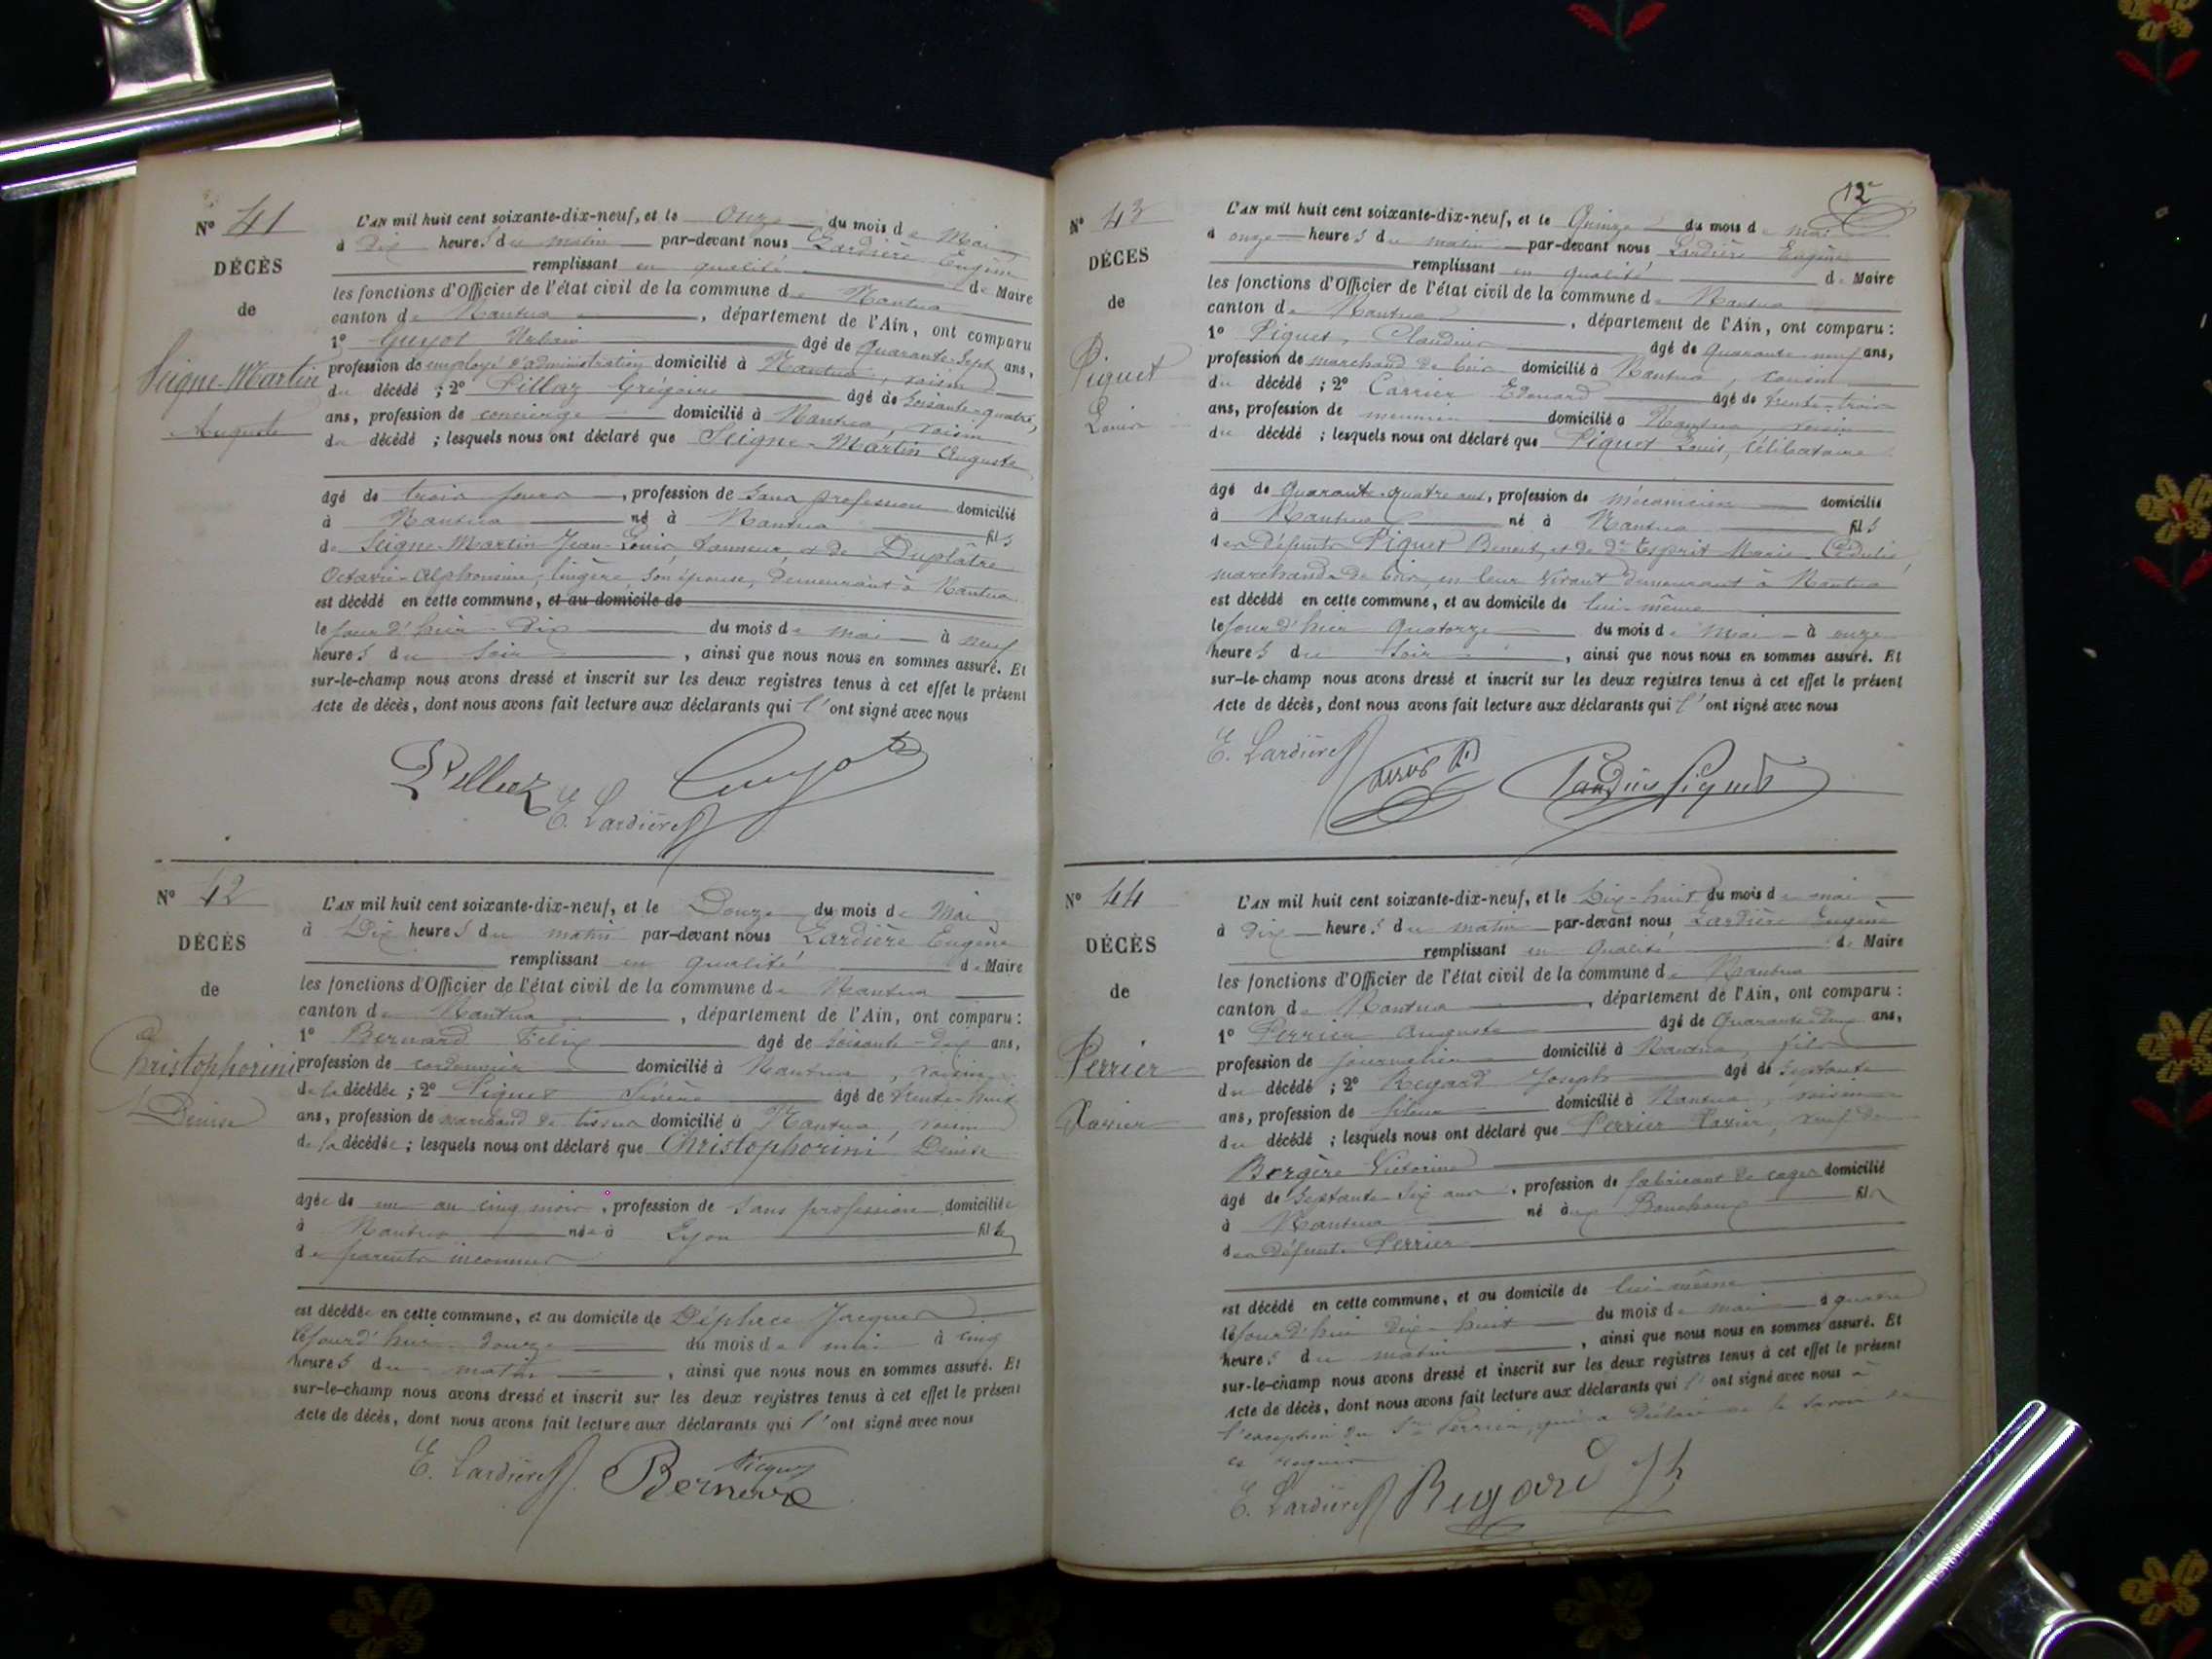 N° 41
DÉCÈS
de
Seigne-Martin
Auguste
L'AN mil huit cent soixante-dix-neuf, et le Onze du mois de Mai
à Dix heures du matin par-devant nous Lardière Eugène
remplissant en qualité de Maire
les fonctions d'Officier de l'état civil de la commune de Nantua
canton de Nantua, département de l'Ain, ont comparu
1° Guyot Urbain âgé de Quarante-Sept ans,
profession de employé d'administration domicilié à Nantua, voisin
du décédé ; 2° Pillaz Grégoire âgé de Soixante-quatre,
ans, profession de concierge domicilié à Nantua, voisin
du décédé ; lesquels nous ont déclaré que Seigne-Martin Auguste
âgé de trois jours, profession de Sans profession domicilié
à Nantua né à Nantua fils
de Seigne-Martin Jean-Louis, tanneur, et de Duplâtre
Octavie-Alphonsine, lingère son épouse, demeurant à Nantua
est décédé en cette commune, et au domicile de
le jour d'hier Dix du mois de mai à neuf
heures du soir, ainsi que nous nous en sommes assuré. Et
sur-le-champ nous avons dressé et inscrit sur les deux registres tenus à cet effet le présent
Acte de décès, dont nous avons fait lecture aux déclarants qui l'ont signé avec nous
Pillaz Guyot
E. Lardière
N° 42
DÉCÈS
de
Christophorini
Denise
L'AN mil huit cent soixante-dix-neuf, et le Douze du mois de Mai
à Dix heures du matin par-devant nous Lardière Eugène
remplissant en qualité de Maire
les fonctions d'Officier de l'état civil de la commune de Nantua
canton de Nantua, département de l'Ain, ont comparu :
1° Bernard Félix âgé de soixante-dix ans,
profession de cordonnier domicilié à Nantua, voisin
de la décédée ; 2° Piquet Sévère âgé de trente-huit
ans, profession de marchand de tissus domicilié à Nantua, voisin
de la décédée ; lesquels nous ont déclaré que Christophorini Denise
âgée de un an cinq mois, profession de Sans profession domiciliée
à Nantua née à Lyon fille
de parents inconnus
est décédée en cette commune, et au domicile de Jacques
le jourd'hui douze du mois de mai à cinq
heures du matin, ainsi que nous nous en sommes assuré. Et
sur-le-champ nous avons dressé et inscrit sur les deux registres tenus à cet effet le présent
Acte de décès, dont nous avons fait lecture aux déclarants qui l'ont signé avec nous
E. Lardière Bernard Piquet
12
N° 43
DÉCÈS
de
Piquet
Louis
L'AN mil huit cent soixante-dix-neuf, et le Quinze du mois de mai
à onze heures du matin par-devant nous Lardière Eugène
remplissant en qualité de Maire
les fonctions d'Officier de l'état civil de la commune de Nantua
canton de Nantua, département de l'Ain, ont comparu :
1° Piquet, Claudius âgé de Quarante-neuf ans,
profession de marchand de bois domicilié à Nantua, cousin
du décédé ; 2° Carrier Edouard âgé de trente-trois
ans, profession de menuisier domicilié à Nantua, voisin
du décédé ; lesquels nous ont déclaré que Piquet Louis, célibataire
âgé de Quarante-quatre ans, profession de mécanicien domicilié
à Nantua né à Nantua fils
des défunts Piquet Benoit, et de de Esprit Marie
marchands de bois, en leur vivant demeurant à Nantua
est décédé en cette commune, et au domicile de lui-même
le jour d'hier Quatorze du mois de Mai à onze
heures du soir, ainsi que nous nous en sommes assuré. Et
sur-le-champ nous avons dressé et inscrit sur les deux registres tenus à cet effet le présent
Acte de décès, dont nous avons fait lecture aux déclarants qui l'ont signé avec nous
E. Lardière
Claudius Piquet
N° 44
DÉCÈS
de
Perrier
Xavier
L'AN mil huit cent soixante-dix-neuf, et le Dix-huit du mois de mai
à Dix heures du matin par-devant nous Lardière Eugène
remplissant en qualité de Maire
les fonctions d'Officier de l'état civil de la commune de Nantua
canton de Nantua, département de l'Ain, ont comparu :
1° Perrier Auguste âgé de Quarante-deux ans,
profession de journalier domicilié à Nantua, fils
du décédé ; 2° Regard Joseph âgé de Septante
ans, profession de fileur domicilié à Nantua, voisin
du décédé ; lesquels nous ont déclaré que Perrier Xavier, veuf de
Borgère Victorine
âgé de Septante-six ans, profession de fabricant de cages domicilié
à Nantua né aux Bouchoux fils
des défunts Perrier
est décédé en cette commune, et au domicile de lui-même
le jourd'hui Dix-huit du mois de mai à quatre
heures du matin, ainsi que nous nous en sommes assuré. Et
sur-le-champ nous avons dressé et inscrit sur les deux registres tenus à cet effet le présent
Acte de décès, dont nous avons fait lecture aux déclarants qui l'ont signé avec nous à
l'exception du Sr Perrier, qui a déclaré ne le savoir de
ce requis
E. Lardière Regard Jh